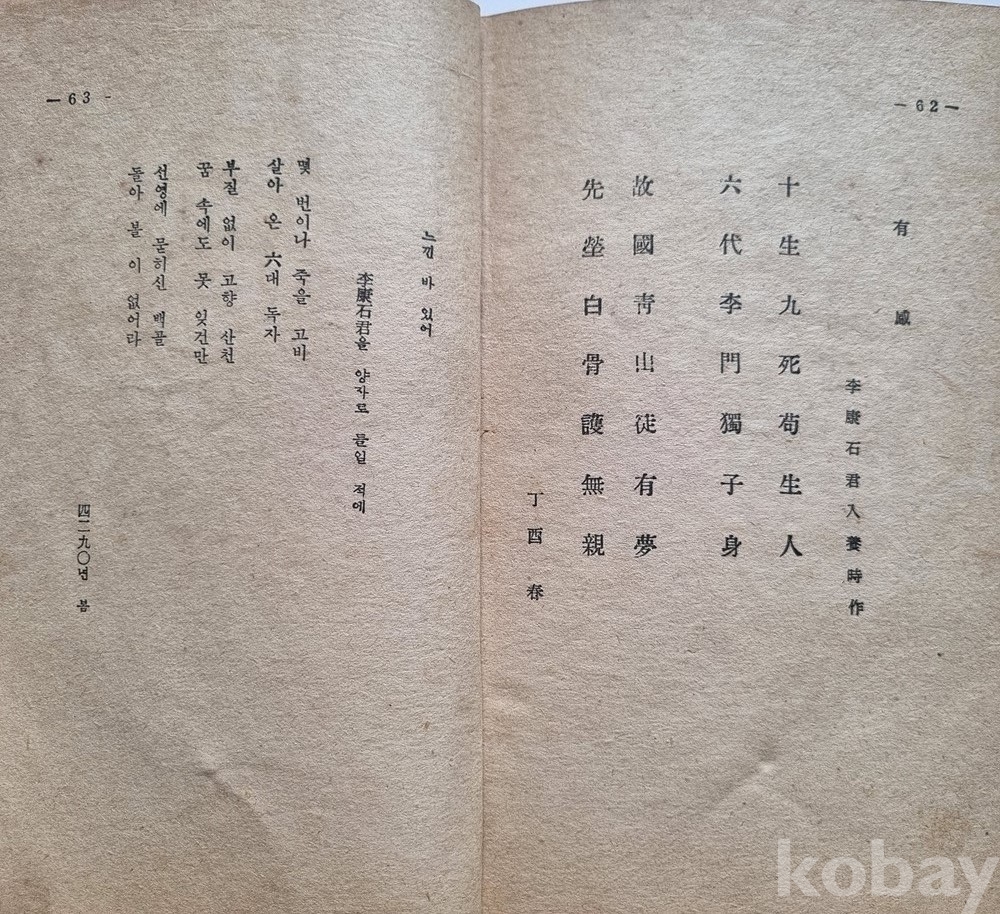 — 62 —
有感
李康石君入養時作
十生九死苟生人
六代李門獨子身
故國靑山徒有夢
先塋白骨護無親
丁酉 春
— 63 -
느낀 바 있어
李康石君을 양자로 들일 적에
몇 번이나 죽을 고비
살아 온 六대 독자
부질 없이 고향 산천
꿈 속에도 못 잊건만
선영에 묻히신 백골
돌아 볼 이 없어라
四二九〇년 봄
kobay